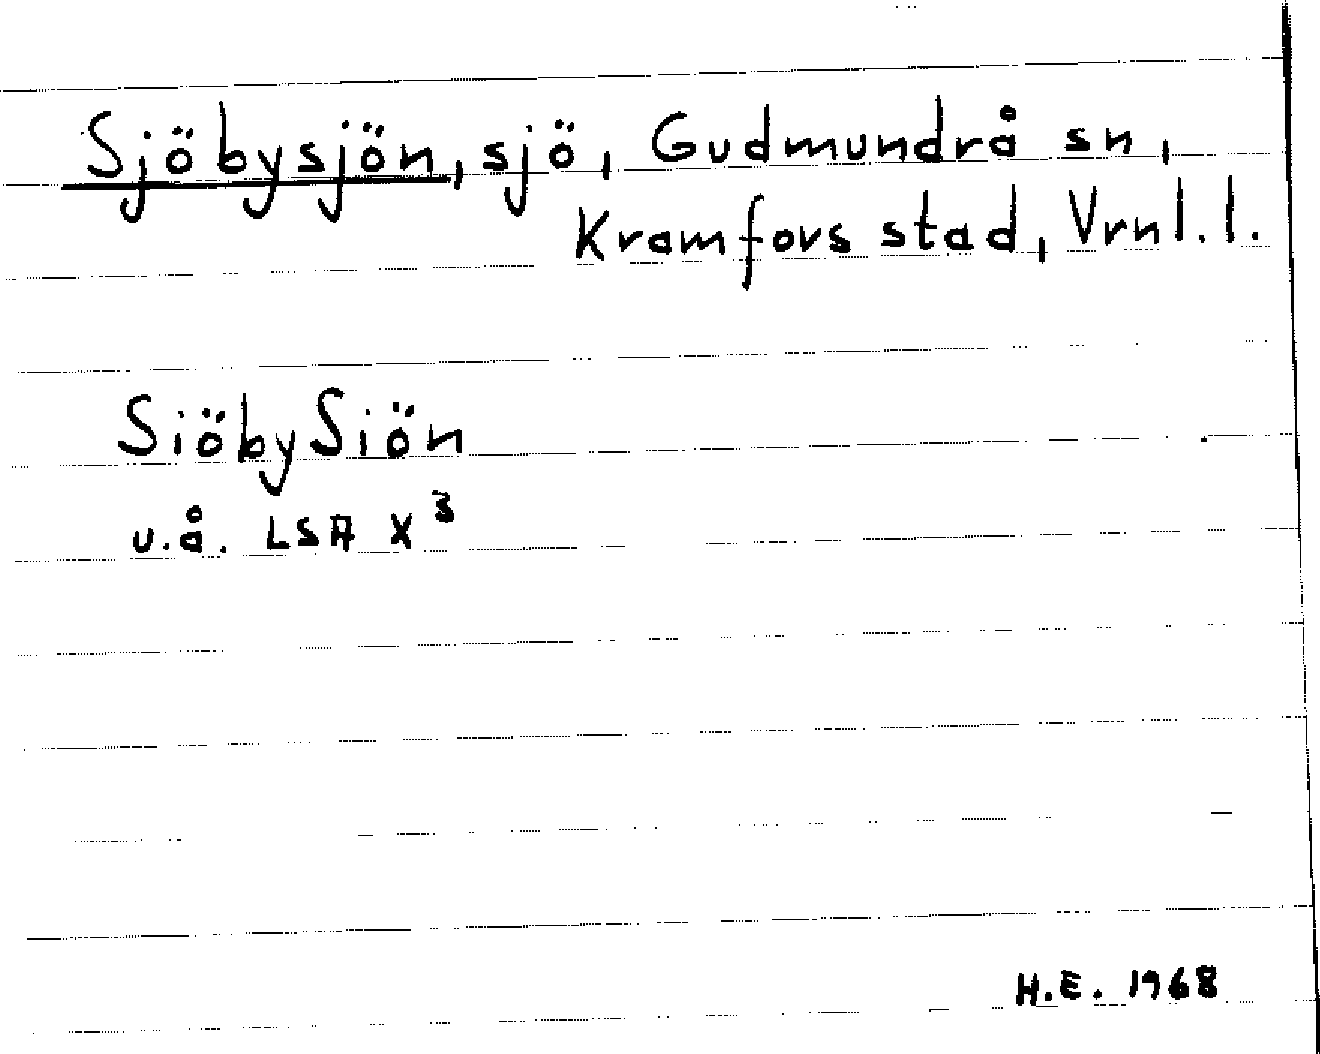 Sjöbysjön, sjö, Gudmundrå sn,
Kramfors stad, Vrnl. l.
SiöbySiön
u.å. LSA X³
H.E. 1968